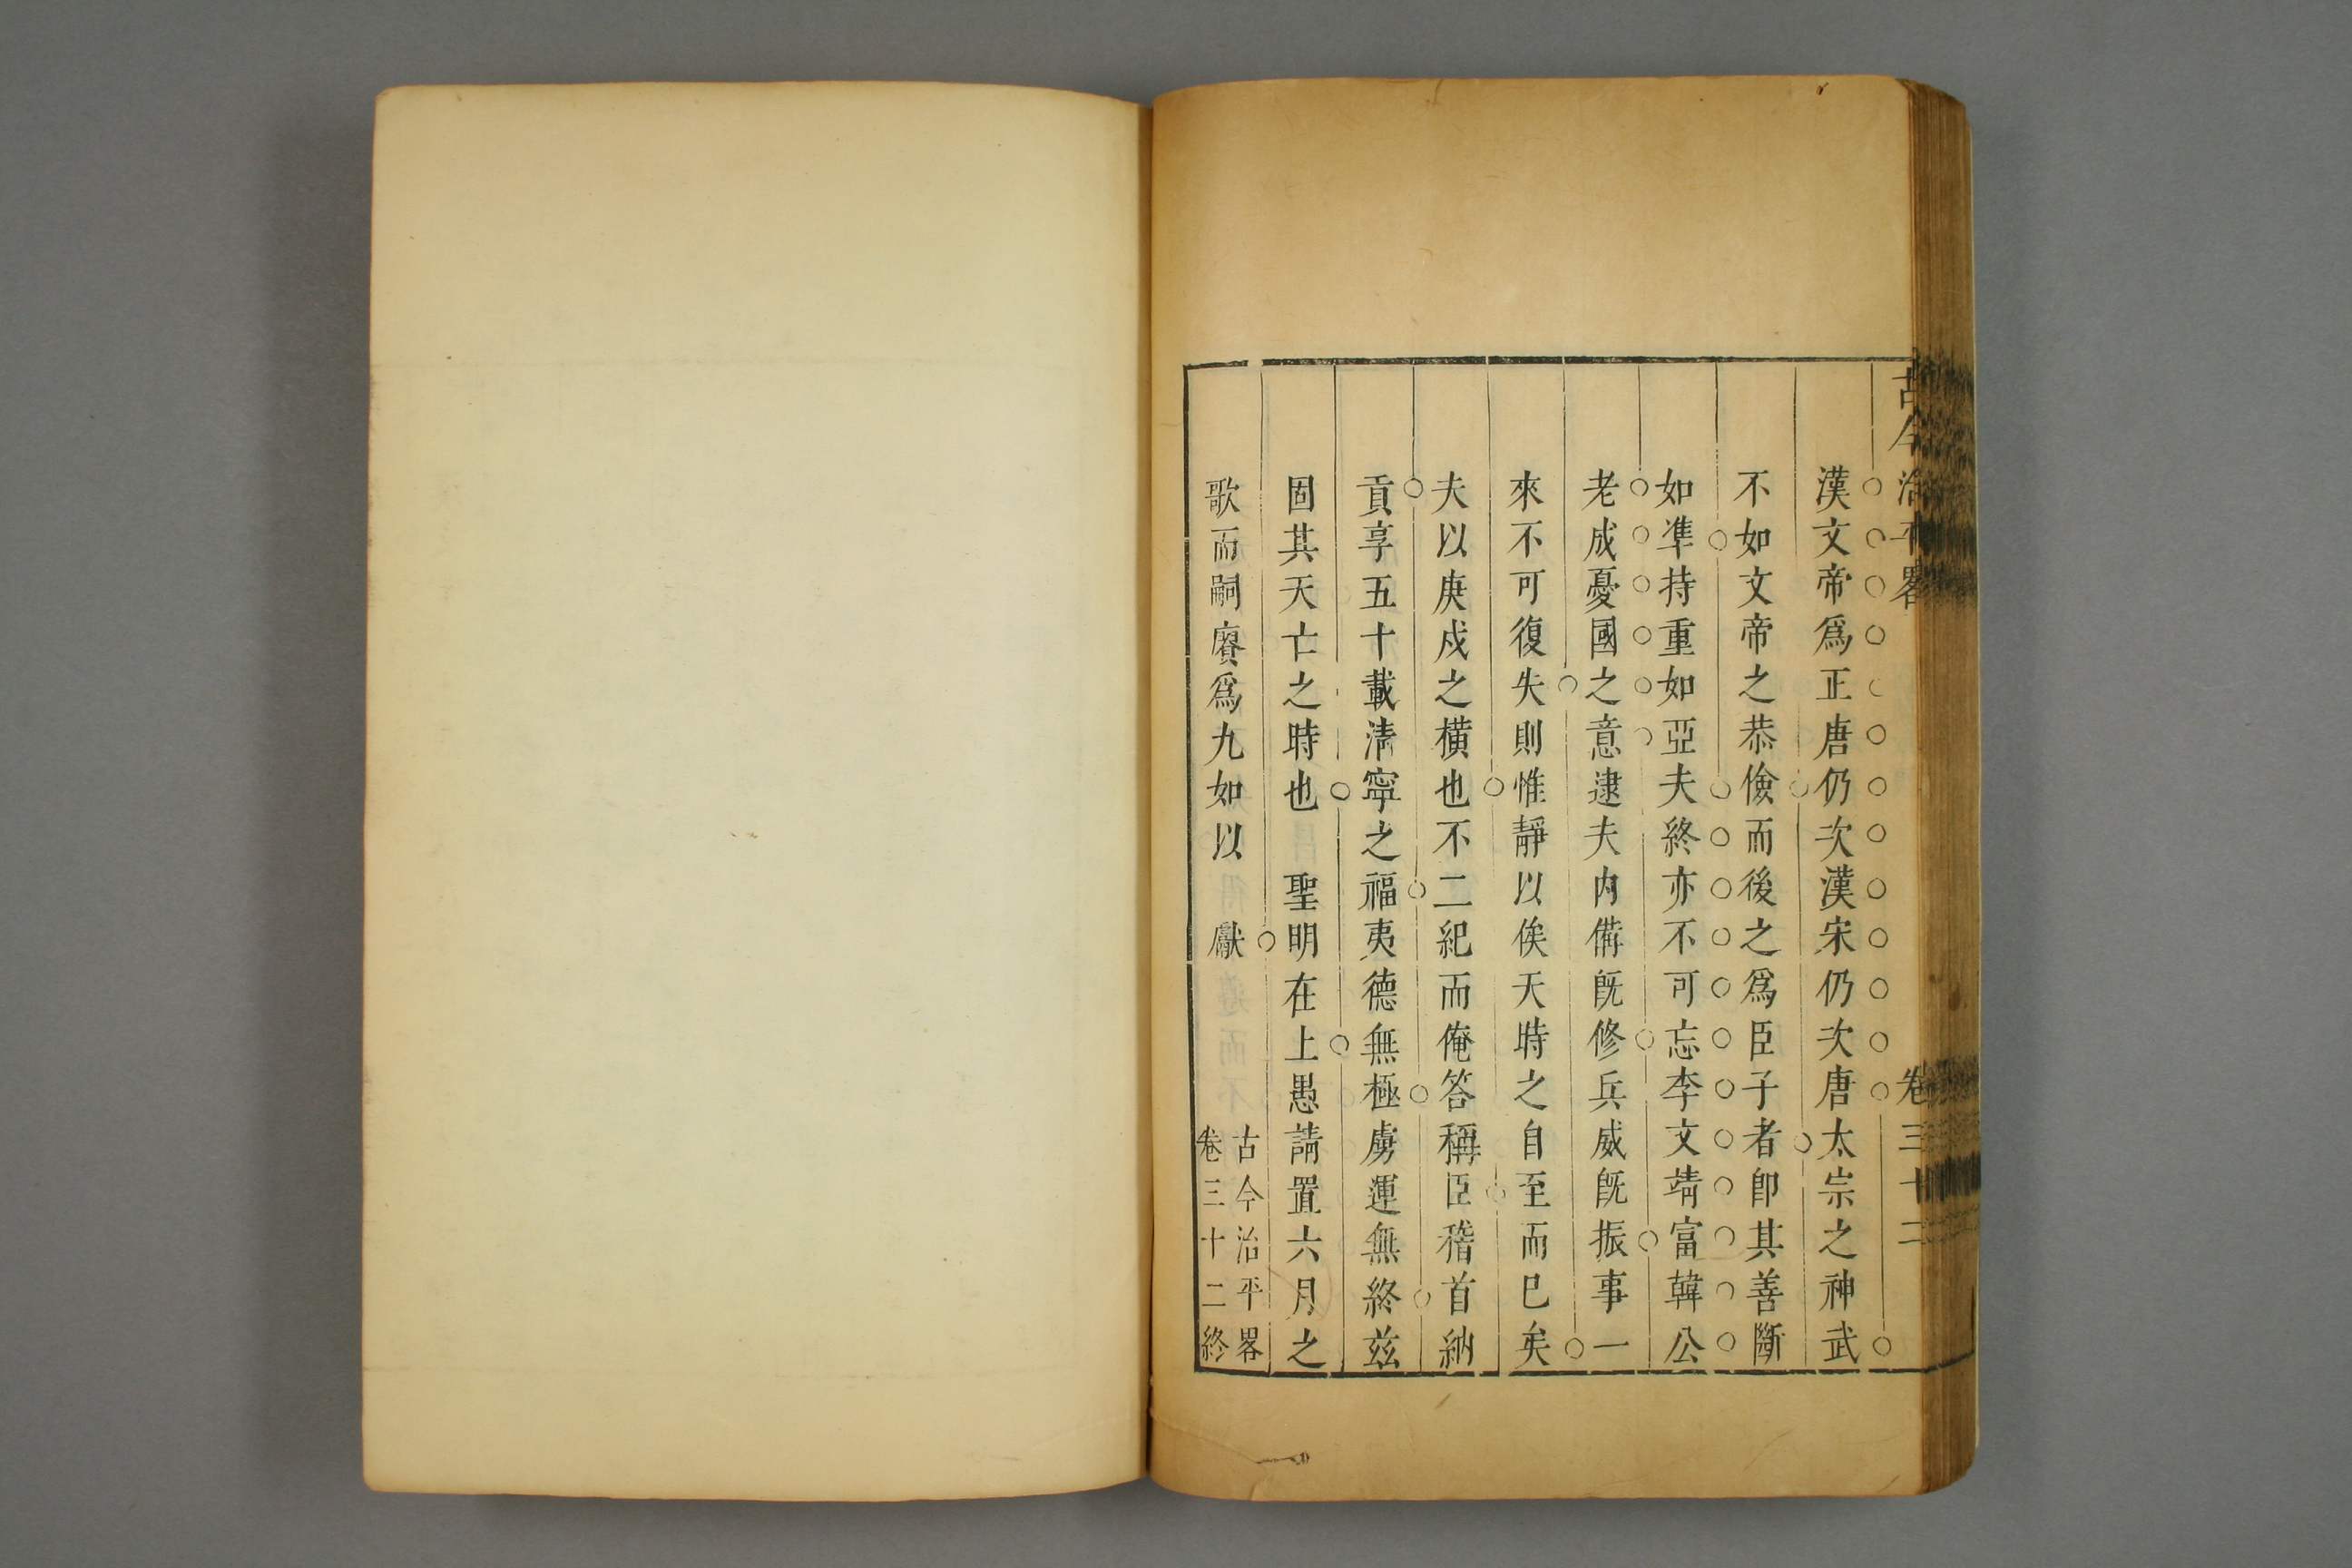 古今治平畧 卷三十二
漢文帝爲正唐仍次漢宋仍次唐太宗之神武
不如文帝之恭儉而後之爲臣子者卽其善斷
如凖持重如亞夫終亦不可忘李文靖富韓公
老成憂國之意逮夫内備旣修兵威旣振事一
來不可復失則惟靜以俟天時之自至而已矣
夫以庚戌之橫也不二紀而俺答稱臣稽首納
貢享五十載淸寧之福夷德無極虜運無終玆
固其天亡之時也 聖明在上愚請置六月之
歌而嗣賡爲九如以 獻
古今治平畧
卷三十二終